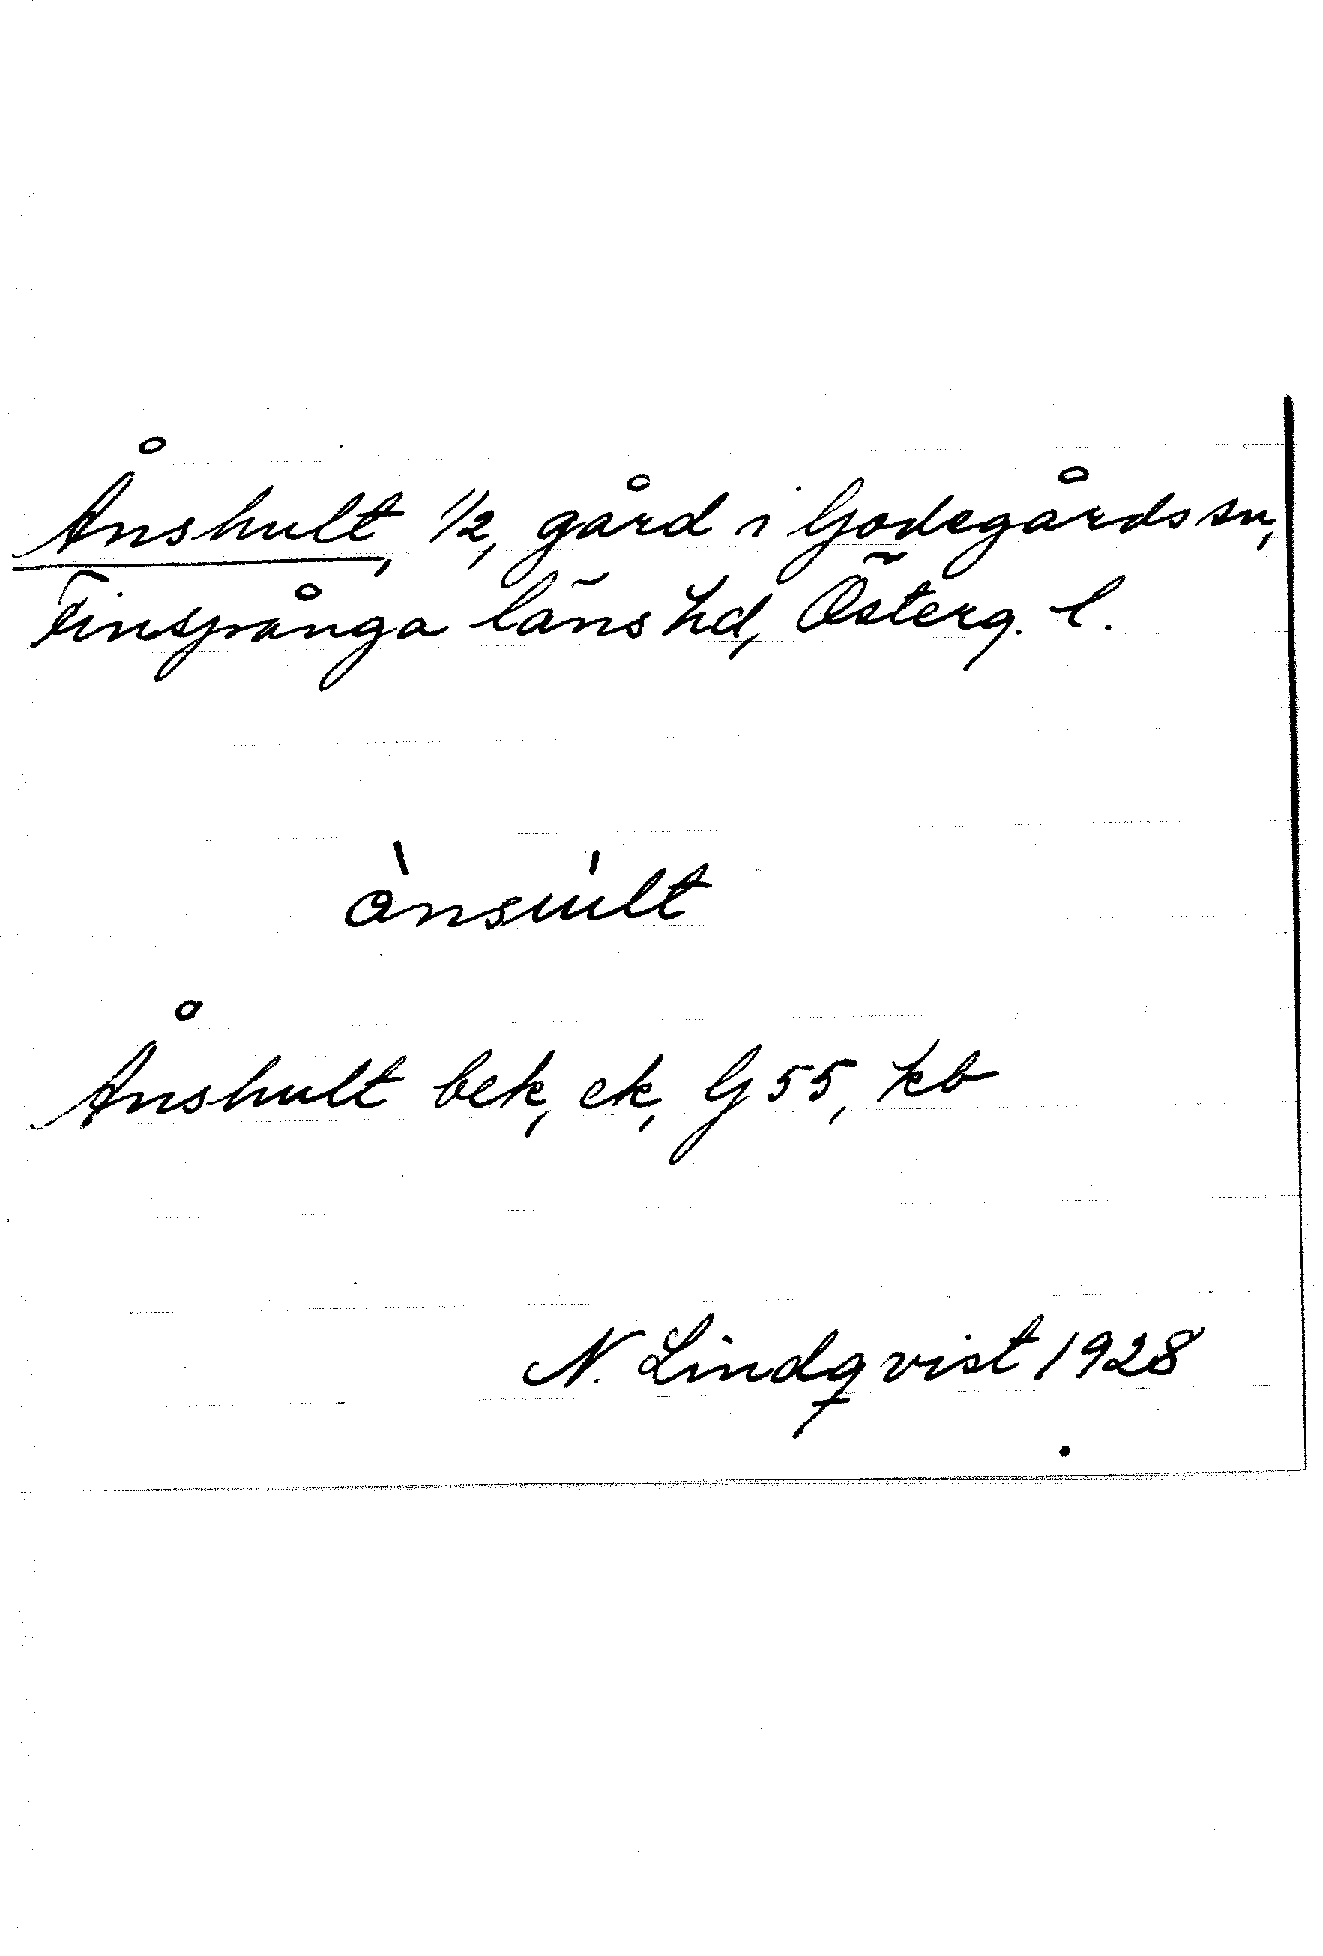 Ånshult, 1/2, gård i Godegårds sn,
Finspånga läns hd, Österg. l.
ànsùlt
Ånshult bek, ek, G 55, kb
N. Lindqvist 1928